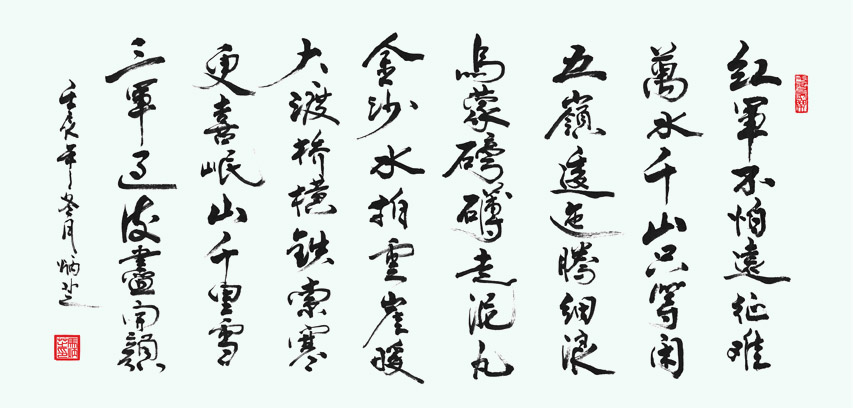 红軍不怕遠征难
萬水千山只等闲
五嶺逶迤腾细浪
烏蒙磅礴走泥丸
金沙水拍雲崖暖
大渡桥横铁索寒
更喜岷山千里雪
三軍过後盡開顔
壬辰年冬月炳